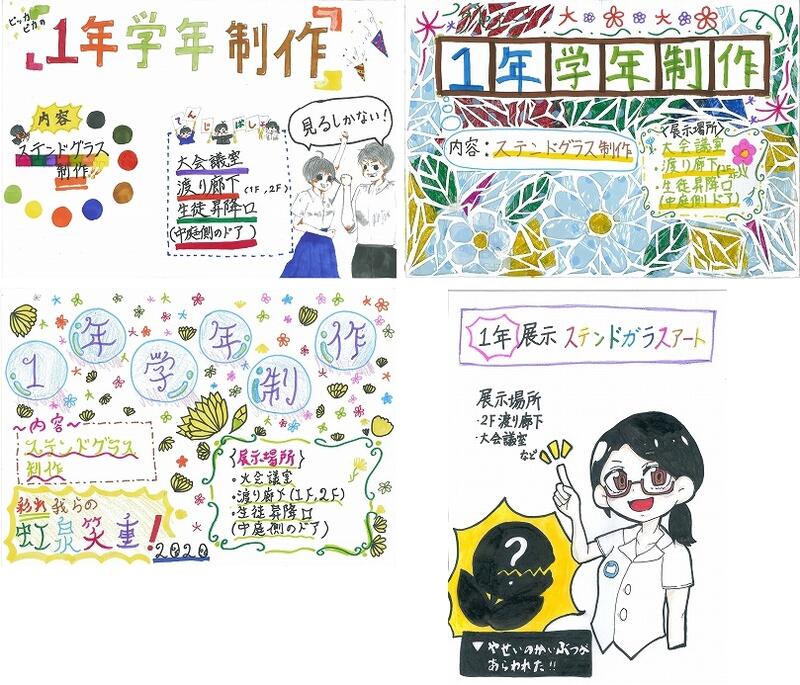 ピッカピカの
1年学年制作
内容
ステンドグラス
制作
てんじばしょ
大会議室
渡り廊下(1F,2F)
生徒昇降口
(中庭側のドア)
見るしかない!
1年学年制作
内容:ステンドグラス制作
〈展示場所〉
大会議室
渡り廊下
生徒昇降口
(中庭側のドア)
1年学年制作
~内容~
ステンドグラス
制作
我らの
虹泉笑重!
2020
{展示場所}
・大会議室
・渡り廊下(1F,2F)
・生徒昇降口
(中庭側のドア)
1年展示 ステンドガラスアート
展示場所
・2F渡り廊下
・大会議室
など
?
▼やせいのかいぶつが
あらわれた!!